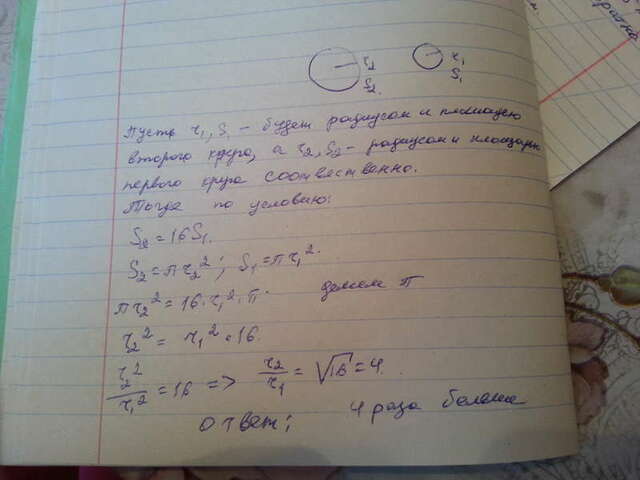 r₂ r₁
S₂. S₁
Пусть r₁, S₁ - будет радиусом и площадью
второго круга, а r₂, S₂ - радиусом и площадью
первого круга соотвественно.
Тогда по условию:
S₂ = 16S₁.
S₂ = πr₂²; S₁ = πr₁².
πr₂² = 16·r₁²·π. делим π
r₂² = r₁²·16.
r₂²/r₁² = 16 => r₂/r₁ = √16 = 4.
ответ: 4 раза больше